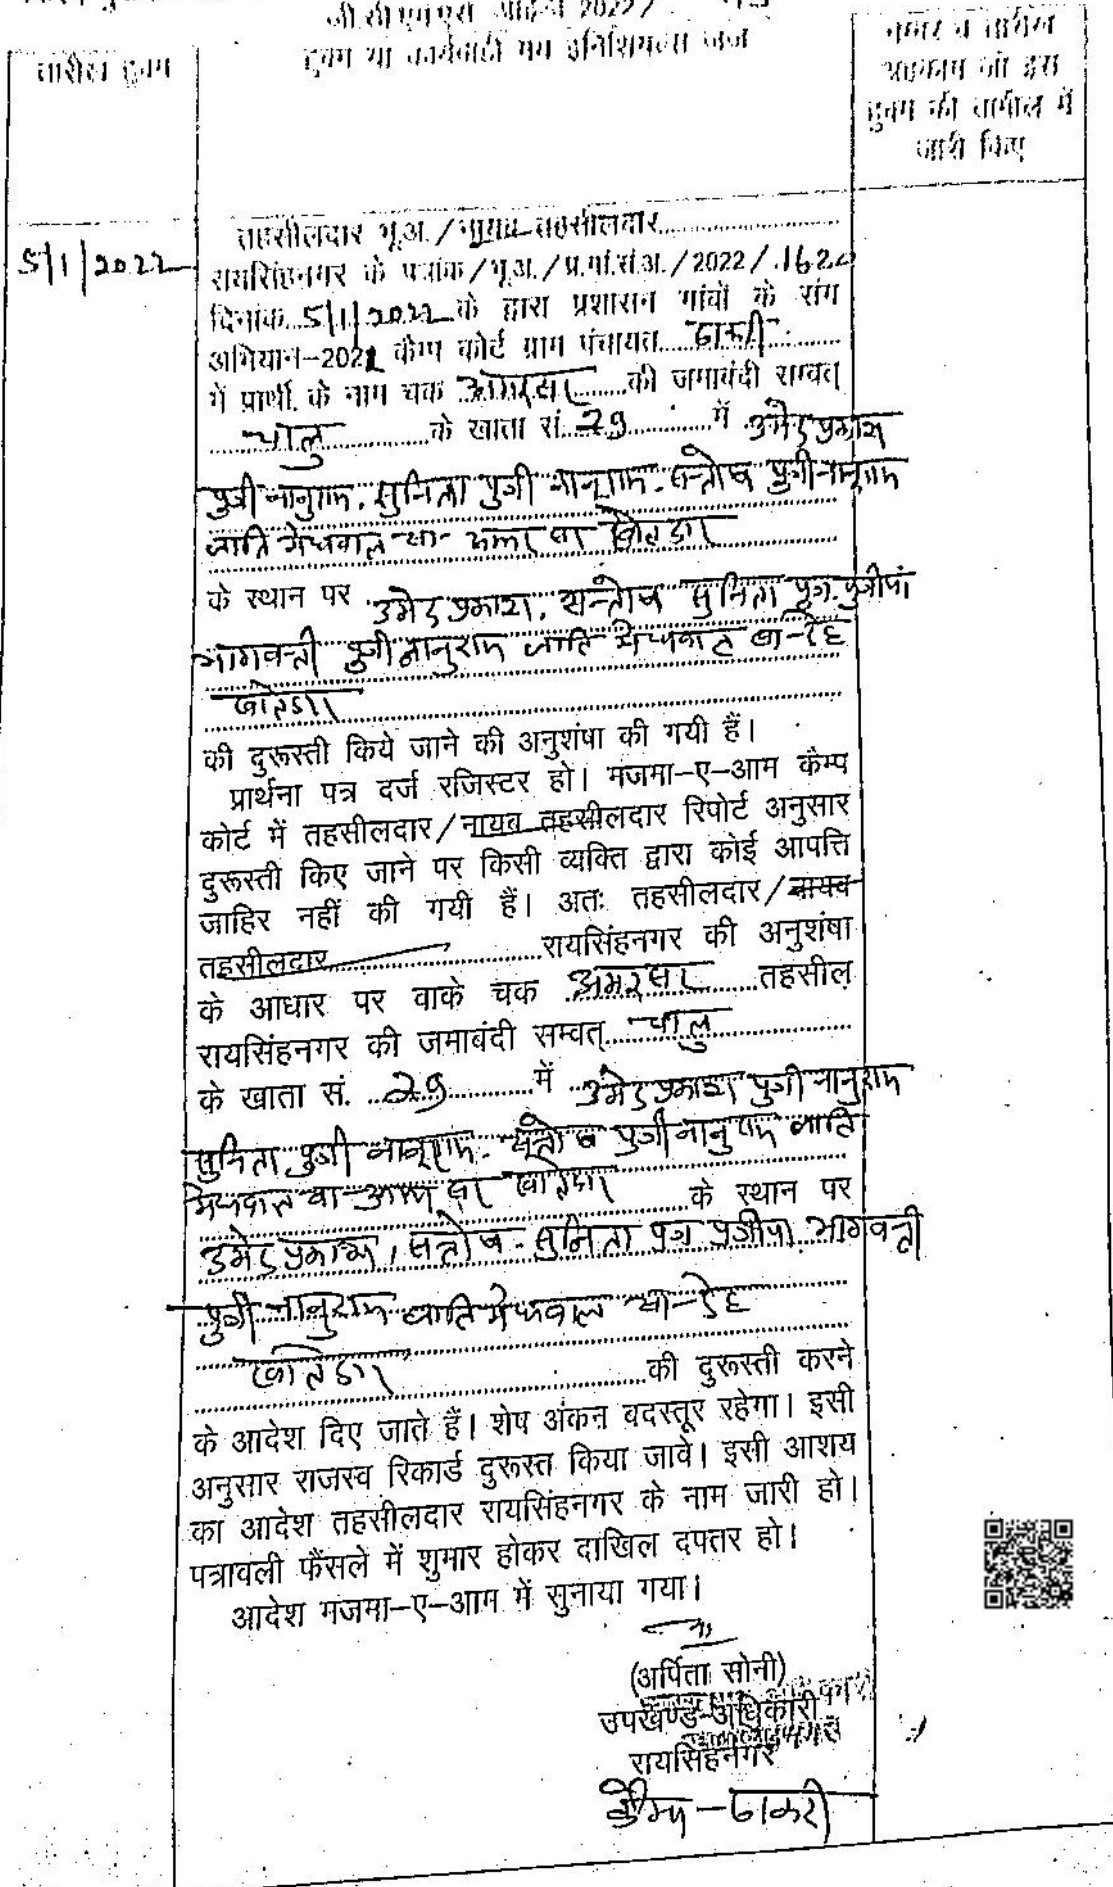 जी.सी.एम.एस. आई.डी. 2022/
तारीख हुक्म
हुक्म या कार्यवाही मय इनिशियल्स जज
नम्बर व तारीख
अहकाम जो इस
हुक्म की तामील में
जारी किए
5/1/2022
तहसीलदार भू.अ./नायब तहसीलदार
रायसिंहनगर के पत्रांक/भू.अ./प्र.गां.सं.अ./2022/.1620
दिनांक 5/1/2022 के द्वारा प्रशासन गांवों के संग
अभियान-2021 कैम्प कोर्ट ग्राम पंचायत ढाकरी
में प्रार्थी के नाम चक अमरसर की जमाबंदी सम्वत्
चालु के खाता सं. 29 में उमेद प्रकाश
पुत्री नानुराम, सुनिता पुत्री नानूराम, सन्तोष पुत्री नानुराम
जाति मेघवाल
के स्थान पर उमेद प्रकाश, सन्तोष सुनिता पुत्र पुत्रीयां
भागवन्ती पुत्री नानुराम जाति मेघवाल सा-देह
खातेदार
की दुरूस्ती किये जाने की अनुशंषा की गयी हैं।
प्रार्थना पत्र दर्ज रजिस्टर हो। मजमा-ए-आम कैम्प
कोर्ट में तहसीलदार/नायब तहसीलदार रिपोर्ट अनुसार
दुरूस्ती किए जाने पर किसी व्यक्ति द्वारा कोई आपत्ति
जाहिर नहीं की गयी हैं। अतः तहसीलदार/नायब
तहसीलदार रायसिंहनगर की अनुशंषा
के आधार पर वाके चक अमरसर तहसील
रायसिंहनगर की जमाबंदी सम्वत् चालु
के खाता सं. 29 में उमेद प्रकाश पुत्री नानुराम
सुनिता पुत्री नानूराम, सन्तोष पुत्री नानुराम जाति
मेघवाल खातेदार के स्थान पर
उमेद प्रकाश, सन्तोष, सुनिता पुत्र पुत्रीयां भागवन्ती
पुत्री नानुराम जाति मेघवाल सा-देह
खातेदार की दुरूस्ती करने
के आदेश दिए जाते हैं। शेष अंकन बदस्तूर रहेगा। इसी
अनुसार राजस्व रिकार्ड दुरूस्त किया जावे। इसी आशय
का आदेश तहसीलदार रायसिंहनगर के नाम जारी हो।
पत्रावली फैंसले में शुमार होकर दाखिल दफ्तर हो।
आदेश मजमा-ए-आम में सुनाया गया।
(अर्पिता सोनी)
उपखण्ड अधिकारी
रायसिंहनगर
कैम्प - ढाकरी